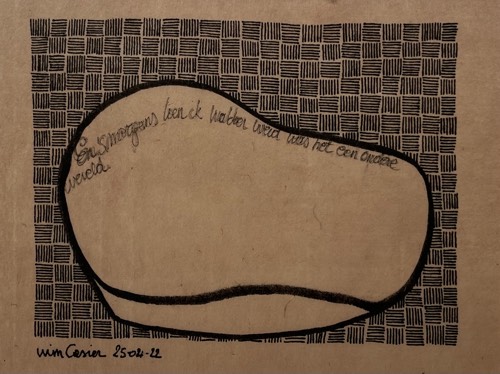 En smorgens toen ik wakker werd was het een andere
wereld.
wim Casier 25-04-22